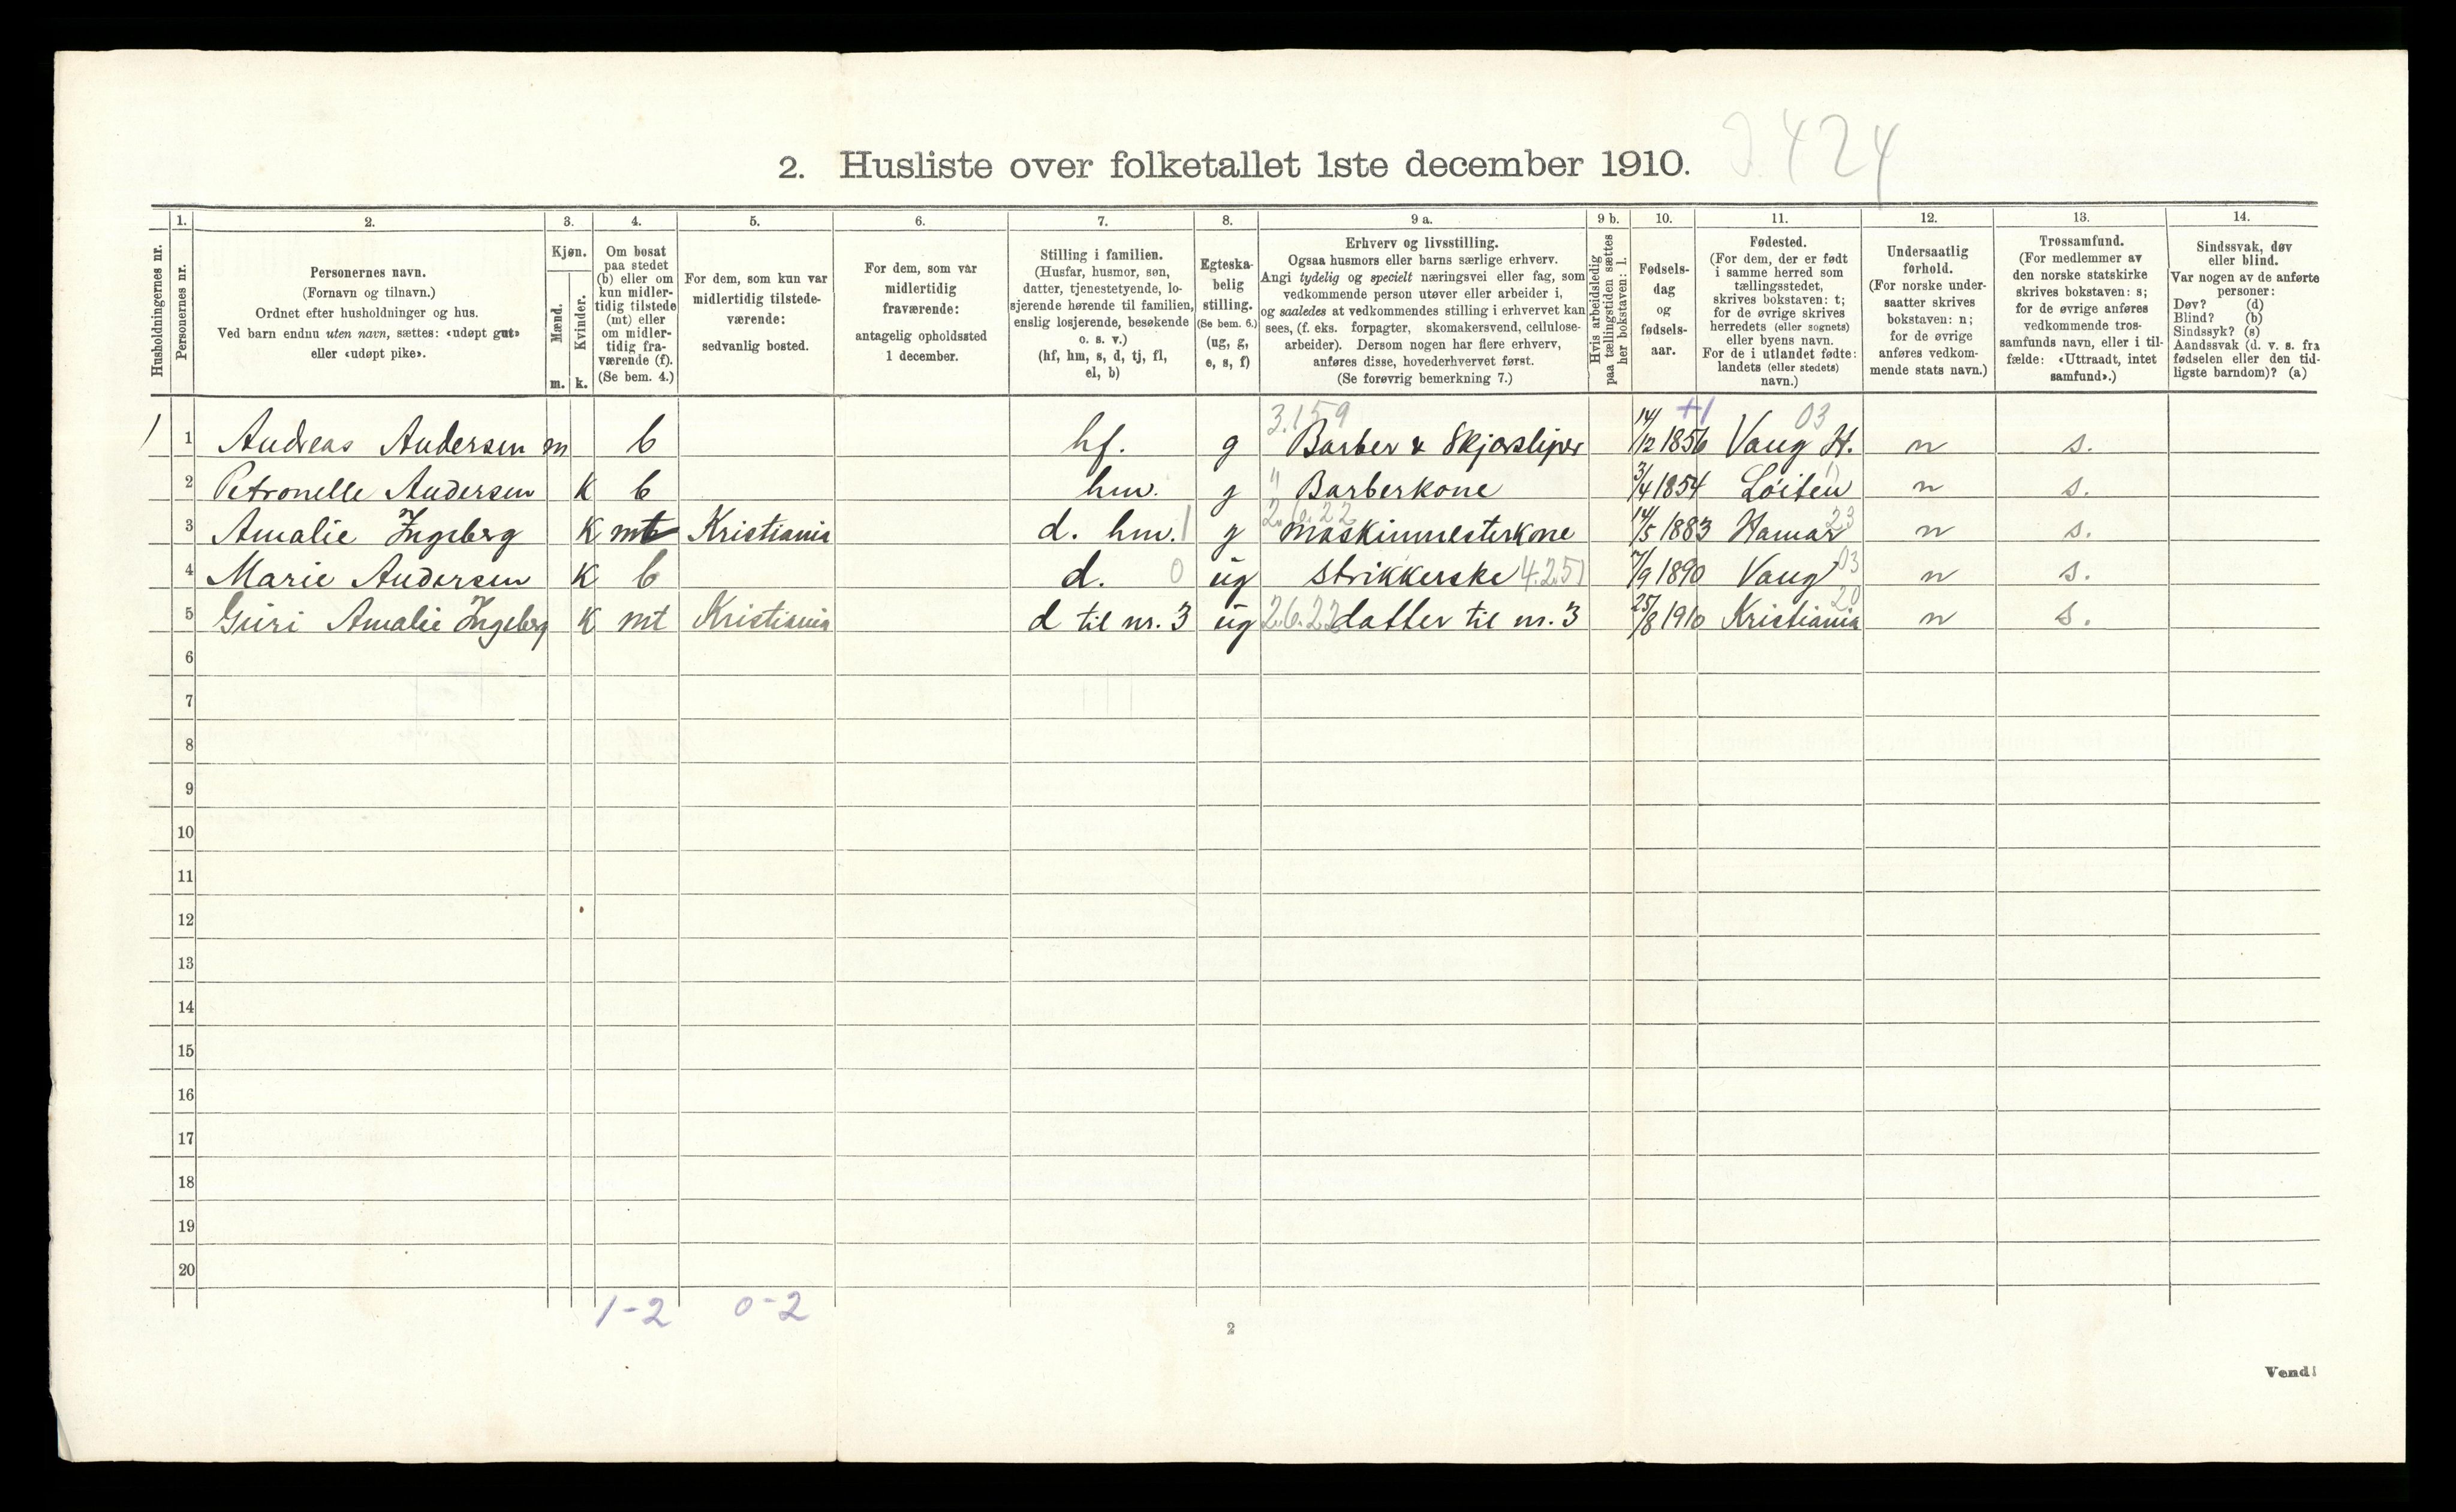 J. 424
2. Husliste over folketallet 1ste december 1910.
Husholdningernes nr.
1.
Personernes nr.
2.
Personernes navn.
(Fornavn og tilnavn.)
Ordnet efter husholdninger og hus.
Ved barn endnu uten navn, sættes: «udøpt gut»
eller «udøpt pike».
3.
Kjøn.
Mænd.
Kvinder.
m. k.
4.
Om bosat
paa stedet
(b) eller om
kun midler-
tidig tilstede
(mt) eller
om midler-
tidig fra-
værende (f).
(Se bem. 4.)
5.
For dem, som kun var
midlertidig tilstede-
værende:
sedvanlig bosted.
6.
For dem, som var
midlertidig
fraværende:
antagelig opholdssted
1 december.
7.
Stilling i familien.
(Husfar, husmor, søn,
datter, tjenestetyende, lo-
sjerende hørende til familien,
enslig losjerende, besøkende
o. s. v.)
(hf, hm, s, d, tj, fl,
el, b)
8.
Egteska-
belig
stilling.
(Se bem. 6.)
(ug, g,
e, s, f)
9 a.
Erhverv og livsstilling.
Ogsaa husmors eller barns særlige erhverv.
Angi tydelig og specielt næringsvei eller fag, som
vedkommende person utøver eller arbeider i,
og saaledes at vedkommendes stilling i erhvervet kan
sees, (f. eks. forpagter, skomakersvend, cellulose-
arbeider). Dersom nogen har flere erhverv,
anføres disse, hovederhvervet først.
(Se forøvrig bemerkning 7.)
9 b.
Hvis arbeidsledig
paa tællingstiden sættes
her bokstaven: l.
10.
Fødsels-
dag
og
fødsels-
aar.
11.
Fødested.
(For dem, der er født
i samme herred som
tællingsstedet,
skrives bokstaven: t;
for de øvrige skrives
herredets (eller sognets)
eller byens navn.
For de i utlandet fødte:
landets (eller stedets)
navn.)
12.
Undersaatlig
forhold.
(For norske under-
saatter skrives
bokstaven: n;
for de øvrige
anføres vedkom-
mende stats navn.)
13.
Trossamfund.
(For medlemmer av
den norske statskirke
skrives bokstaven: s;
for de øvrige anføres
vedkommende tros-
samfunds navn, eller i til-
fælde: «Uttraadt, intet
samfund».)
14.
Sindssvak, døv
eller blind.
Var nogen av de anførte
personer:
Døv? (d)
Blind? (b)
Sindssyk? (s)
Aandssvak (d. v. s. fra
fødselen eller den tid-
ligste barndom)? (a)
3.159 +1 03
1 1 Andreas Andersen m b hf. g Barber & Skjærsliper 14/12 1856 Vang H. n s.
2 Petronelle Andersen K b hm. g " Barberkone 3/4 1854 Løiten n s.
2.6.22 23
3 Amalie Ingeberg K mt Kristiania d. hm. 1 g Maskinmesterkone 14/5 1883 Hamar n s.
4 Marie Andersen K b d. 0 ug Strikkerske 4.251 7/9 1890 Vang 03 n s.
5 Guri Amalie Ingeberg K mt Kristiania d til nr. 3 ug 2.6.22 datter til nr. 3 25/8 1910 Kristiania 20 n s.
6
7
8
9
10
11
12
13
14
15
16
17
18
19
20
1-2 0-2
2
Vend!